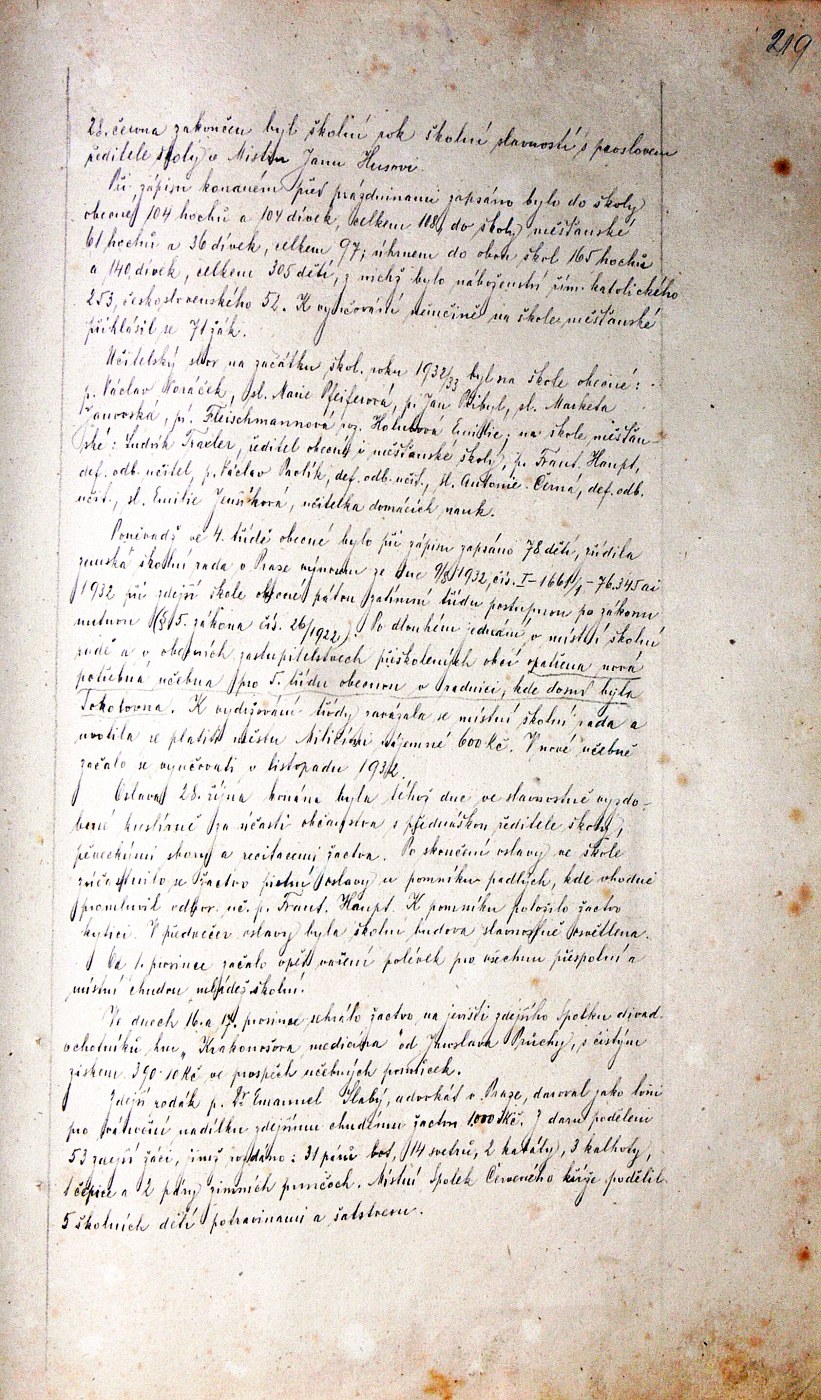 219
28. června zakončen byl školní rok školní slavností s proslovem
ředitele školy o Mistru Janu Husovi.
Při zápisu konaném před prázdninami zapsáno bylo do školy
obecné 104 hochů a 104 dívek, celkem 208, do školy měšťanské
61 hochů a 36 dívek, celkem 97; úhrnem do obou škol 165 hochů
a 140 dívek, celkem 305 dětí, z nichž bylo náboženství řím. katolického
253, československého 52. K vyučování němčině na škole měšťanské
přihlásil se 71 žák.
Učitelský sbor na začátku škol. roku 1932/33 byl na škole obecné:
p. Václav Voráček, sl. Marie Pfeiferová, p. Jan Přibyl, sl. Markéta
Žanovská, pí. Fleischmannová roz. Holubová Emilie; na škole měšťan-
ské: Ludvík Traxler, ředitel obecné i měšťanské školy, p. Frant. Haupt,
def. odb. učitel, p. Václav Pavlík, def. odb. učit., sl. Antonie Černá, def. odb.
učit., sl. Emilie Jensíková, učitelka domácích nauk.
Poněvadž ve 4. třídě obecné bylo při zápisu zapsáno 78 dětí, zřídila
zemská školní rada v Praze výnosem ze dne 9/8 1932, čís. I-1661/1-76.345 ai
1932 při zdejší škole obecné pátou zatímní třídu postupnou po zákonu
nutnou (§ 5. zákona čís. 26/1922). Po dlouhém jednání v místní školní
radě a v obecních zastupitelstvech přiškolených obcí opatřena nová
potřebná učebna pro 5. třídu obecnou v radnici, kde dosud byla
Sokolovna. K vydržování třídy zavázala se místní školní rada a
uvolila se platiti městu Miličínu nájemné 600 Kč. V nové učebně
začalo se vyučovati v listopadu 1932.
Oslava 28. října konána byla téhož dne ve slavnostně vyzdo-
bené kreslírně za účasti občanstva s přednáškou ředitele školy,
pěveckými sbory a recitacemi žactva. Po skončení oslavy ve škole
zúčastnilo se žactvo pietní oslavy u pomníku padlých, kde vhodně
promluvil odbor. uč. p. Frant. Haupt. K pomníku položilo žactvo
kytici. V předvečer oslavy byla školní budova slavnostně osvětlena.
Od 1. prosince začalo opět vaření polévek pro všechnu přespolní a
místní chudou mládež školní.
Ve dnech 16. a 17. prosince sehrálo žactvo na jevišti zdejšího Spolku divad.
ochotníků hru „Krakonošova medicina" od Jaroslava Průchy, s čistým
ziskem 390·10 Kč ve prospěch učebných pomůcek.
Zdejší rodák p. Dr Emanuel Slabý, advokát v Praze, daroval jako loni
pro vánoční nadílku zdejšímu chudému žactvu 1.000 Kč. Z daru poděleni
53 zdejší žáci, jimž rozdáno: 31 párů bot, 14 svetrů, 2 kabáty, 3 kalhoty,
1 čepice a 2 páry zimních punčoch. Místní Spolek Červeného kříže podělil
5 školních dětí potravinami a šatstvem.